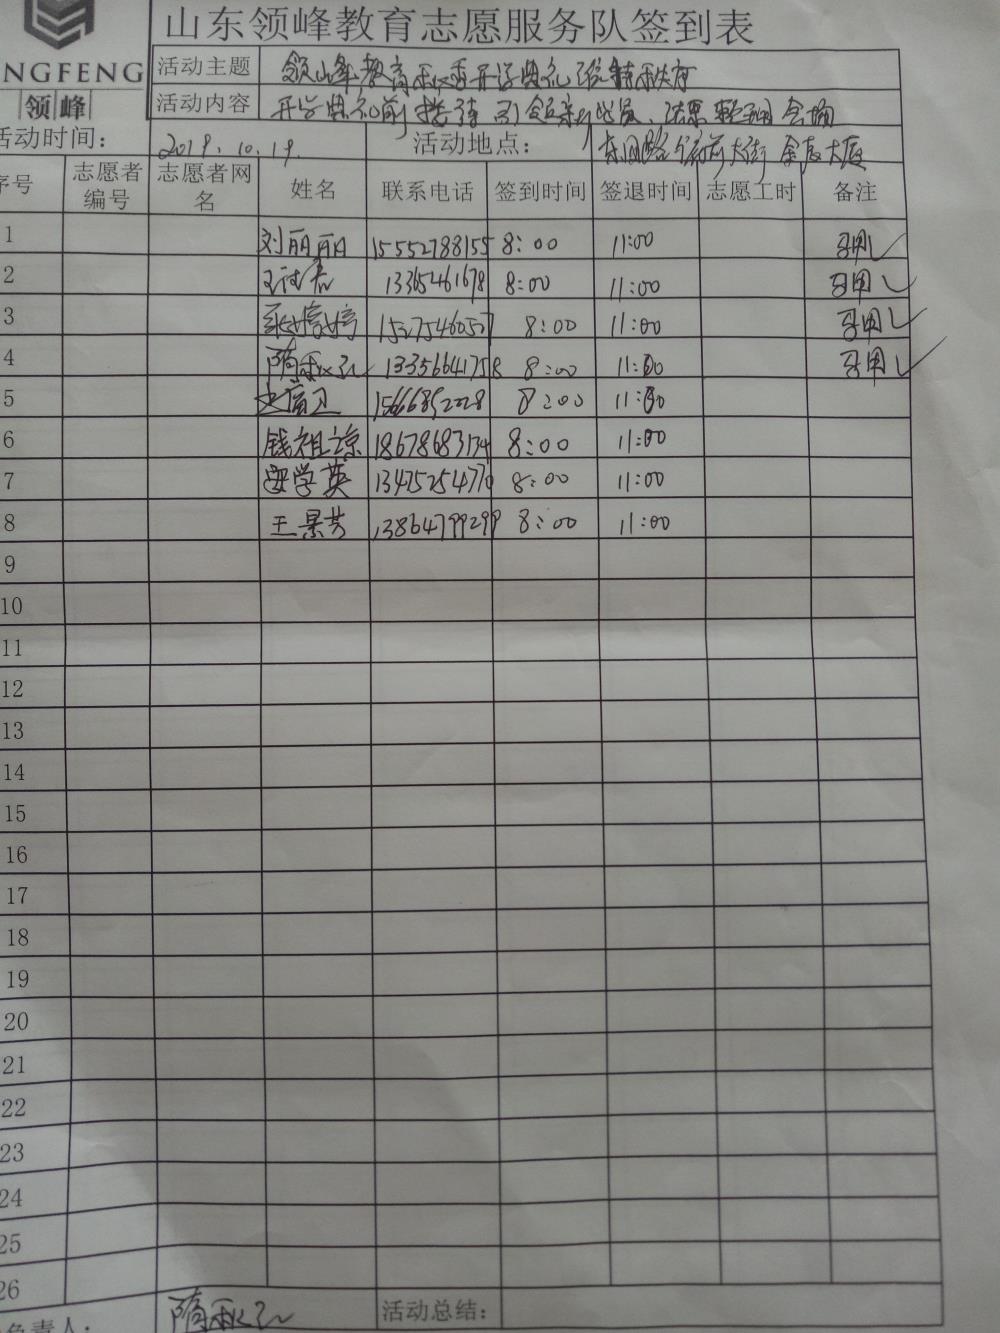 山东领峰教育志愿服务队签到表
NGFENG
领峰
活动主题 领峰教育秋季开学典礼维持秩序
活动内容 开学典礼前接待 引领新学员、 会场
活动时间: 2019.10.19. 活动地点: 大街 大厦
序号 志愿者编号 志愿者网名 姓名 联系电话 签到时间 签退时间 志愿工时 备注
1 刘丽丽 15552788155 8:00 11:00
2 13365461678 8:00 11:00
3 张婷婷 8:00 11:00
4 隋秋 13356641758 8:00 11:00
5 8:00 11:00
6 钱祖琼 18678683174 8:00 11:00
7 学英 13475254770 8:00 11:00
8 王景芳 13864799299 8:00 11:00
9
10
11
12
13
14
15
16
17
18
19
20
21
22
23
24
25
26
负责人: 隋秋 活动总结: